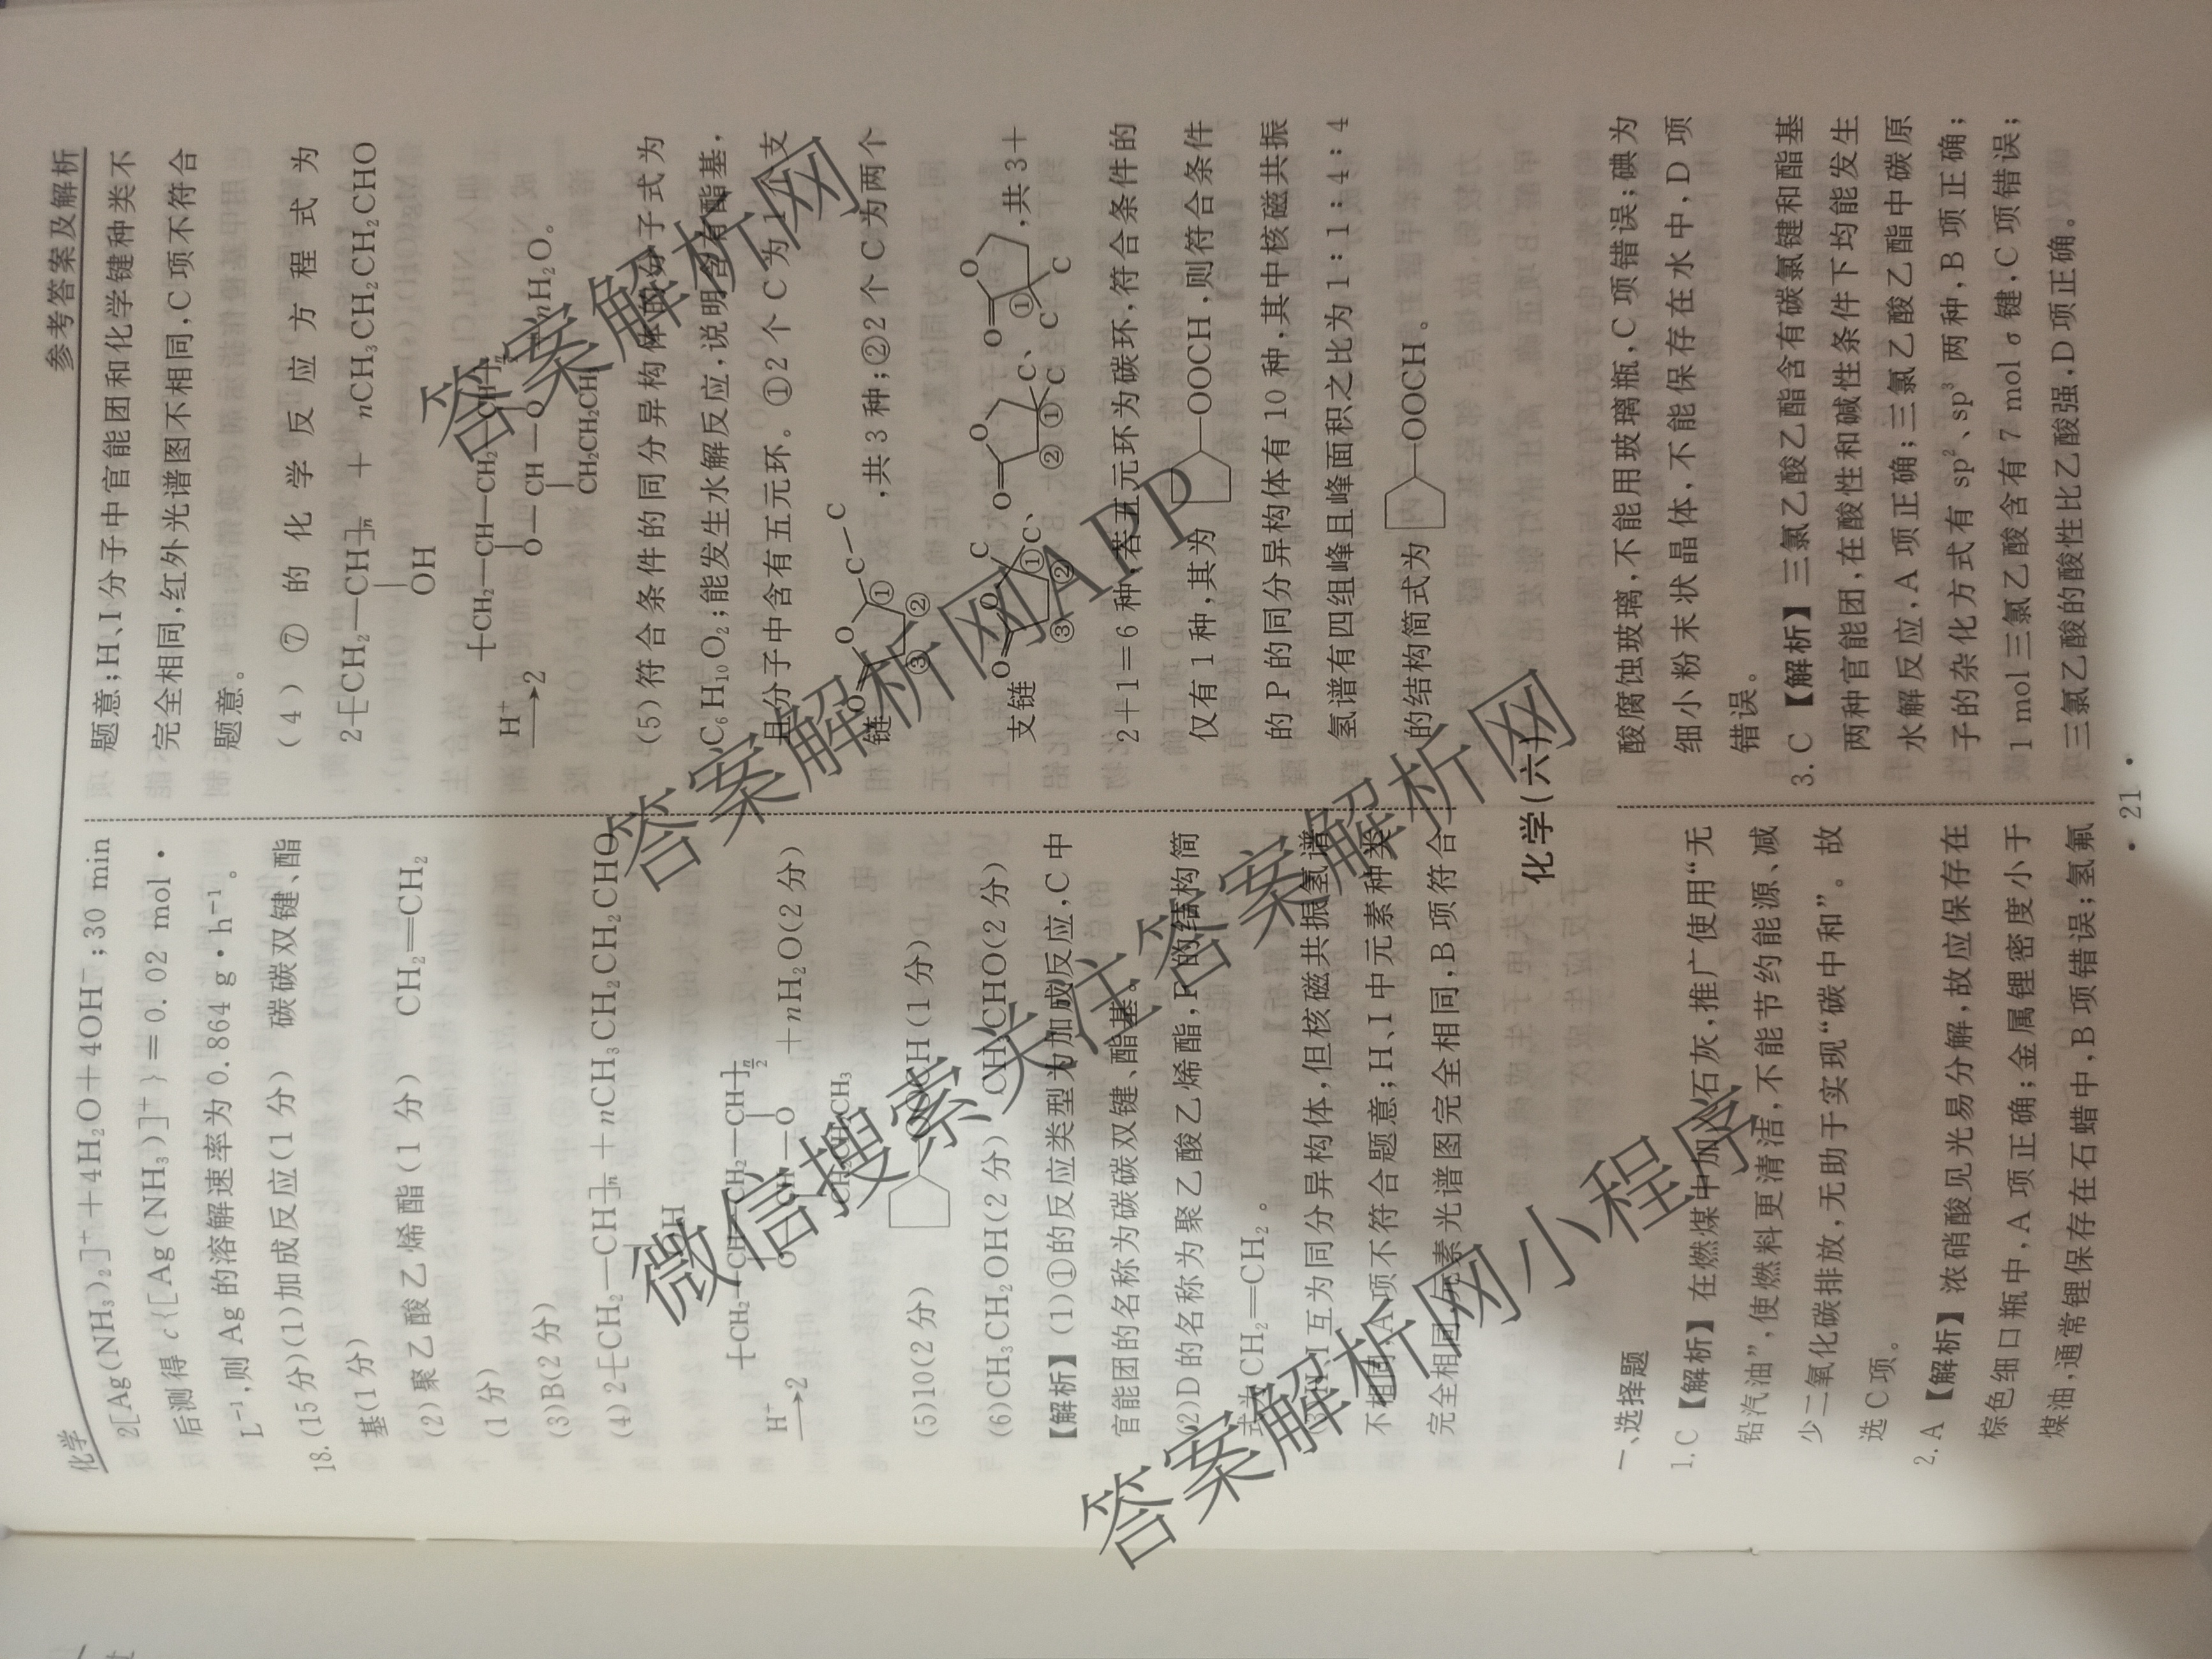 化学
参考答案及解析
2[Ag(NH₃)₂]⁺+4H₂O+4OH⁻;30 min
后测得 c{[Ag(NH₃)]⁺}=0.02 mol·
L⁻¹,则 Ag 的溶解速率为 0.864 g·h⁻¹。
18.(15 分)(1)加成反应(1 分) 碳碳双键、酯
基(1 分)
(2)聚乙酸乙烯酯(1 分) CH₂=CH₂
(1 分)
(3)B(2 分)
(4)2⁅CH₂—CH⁆ₙ+nCH₃CH₂CH₂CHO
OH
⁅CH₂—CH—CH₂—CH⁆n/2
H⁺→2 O—CH—O +nH₂O(2 分)
CH₂CH₂CH₃
(5)10(2 分) —OOCH(1 分)
(6)CH₃CH₂OH(2 分) CH₃CHO(2 分)
【解析】(1)①的反应类型为加成反应,C 中
官能团的名称为碳碳双键、酯基。
(2)D 的名称为聚乙酸乙烯酯,F 的结构简
式为 CH₂=CH₂。
(3)H、I 互为同分异构体,但核磁共振氢谱
不相同,A 项不符合题意;H、I 中元素种类
完全相同,元素光谱图完全相同,B 项符合
题意;H、I 分子中官能团和化学键种类不
完全相同,红外光谱图不相同,C 项不符合
题意。
(4)⑦的化学反应方程式为
2⁅CH₂—CH⁆ₙ + nCH₃CH₂CH₂CHO
OH
⁅CH₂—CH—CH₂—CH⁆n/2
H⁺→2 O—CH—O +nH₂O。
CH₂CH₂CH₃
(5)符合条件的同分异构体的分子式为
C₆H₁₀O₂;能发生水解反应,说明含有酯基,
且分子中含有五元环。①2 个 C 为 1 个支
链 O O ① C—C ② ③ ,共 3 种;②2 个 C 为两个
支链 O O C ① ② ③ C、 O O C ① ② C、 O O ① C C ,共 3+
2+1=6 种;若五元环为碳环,符合条件的
仅有 1 种,其为 —OOCH,则符合条件
的 P 的同分异构体有 10 种,其中核磁共振
氢谱有四组峰且峰面积之比为 1∶1∶4∶4
的结构简式为 —OOCH。
化学(六)
一、选择题
1.C 【解析】在燃煤中加入石灰,推广使用“无
铅汽油”,使燃料更清洁,不能节约能源、减
少二氧化碳排放,无助于实现“碳中和”。故
选 C 项。
2.A 【解析】浓硝酸见光易分解,故应保存在
棕色细口瓶中,A 项正确;金属锂密度小于
煤油,通常锂保存在石蜡中,B 项错误;氢氟
酸腐蚀玻璃,不能用玻璃瓶,C 项错误;碘为
细小粉末状晶体,不能保存在水中,D 项
错误。
3.C 【解析】三氯乙酸乙酯含有碳氯键和酯基
两种官能团,在酸性和碱性条件下均能发生
水解反应,A 项正确;三氯乙酸乙酯中碳原
子的杂化方式有 sp²、sp³ 两种,B 项正确;
1 mol 三氯乙酸含有 7 mol σ 键,C 项错误;
三氯乙酸的酸性比乙酸强,D 项正确。
·21·
答案解析网
答案解析网APP
微信搜索关注答案解析网
答案解析网小程序